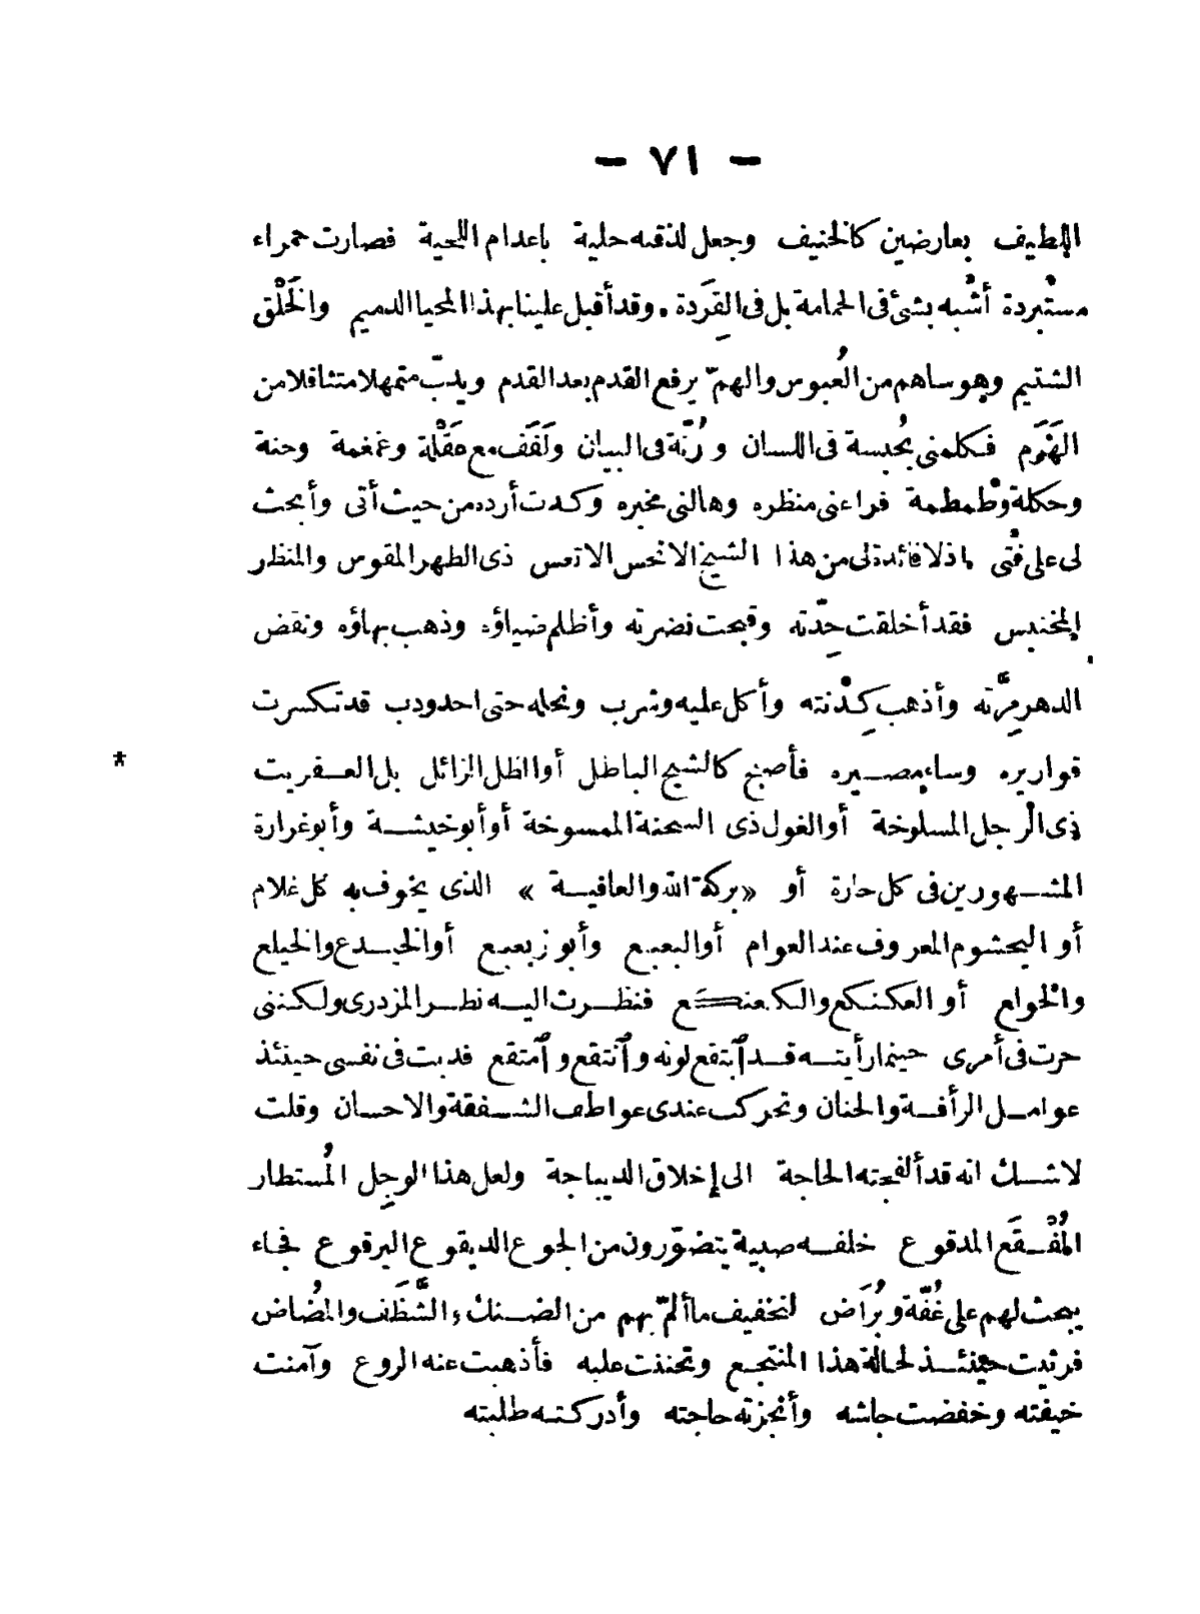 — ٧١ —
اللطيف بعارضين كالخنيف وجعل لذقنه حلية باعدام اللحية فصارت حمراء
مستْبردة أشْبه بشئ فى الحمامة بل فى القِرَدة . وقد أقبل علينا بهذا المحيا الدميم والخَلْق
الشتيم وهو ساهم من العُبوس والهمّ يرفع القدم بعد القدم ويدبّ متمهلا متثاقلا من
الهَرَم فكلمنى بحُبسة فى اللسان ورُتّة فى البيان ولَفَف مع عَقْلة وغمغمة وحنة
وحكلة وطْمطمة فراعنى منظره وهالنى مخبره وكدت أرده من حيث أتى وأبحث
لى على فتْى ماذلا فائدة لى من هذا الشيخ الانحس الاتعس ذى الظهر المقوس والمنظر
المخنبس فقد أخلقت حِدّته وقبحت نضرته وأظلم ضياؤه وذهب بهاؤه ونقض
الدهر مِرَّته وأذهب كِدْنته وأكل عليه وشرب ونحله حتى احدودب قد تكسرت
قواريره وساء مصيره فأصبح كالشبح الباطل أو الظل الزائل بل العفريت *
ذى الرْجل المسلوخة أو الغول ذى السحنة الممسوخة أو أبو خيشة وأبو غرارة
المشهورين فى كل حارة أو «بركة الله والعافية» الذى يخوف به كل غلام
أو البحشوم المعروف عند العوام أو البعبع وأبو زبعبع أو الخيدع والخيلع
والخولع أو العكنكع والكعنكَع فنظرت اليه نظر المزدرى ولكننى
حرت فى أمرى حينما رأيته قد ٱبتقع لونه وٱنتقع وٱمتقع فدبت فى نفسى حينئذ
عوامل الرأفة والحنان وتحركت عندى عواطف الشفقة والاحسان وقلت
لاشك انه قد ألفجته الحاجة الى إخلاق الديباجة ولعل هذا الوجِل المُستطار
المُفْقَع المدقوع خلفه صبية يتضوّرون من الجوع الديقوع البرقوع فجاء
يبحث لهم على عُفّة وبُرَاض لتخفيف ما ألمّ بهم من الضنك والشَّظَف والمُضاض
فرثيت حينئذ لحالة هذا المنتجع وتحننت عليه فأذهبت عنه الروع وآمنت
خيفته وخفضت جاشه وأنجزته حاجته وأدركته طلبته